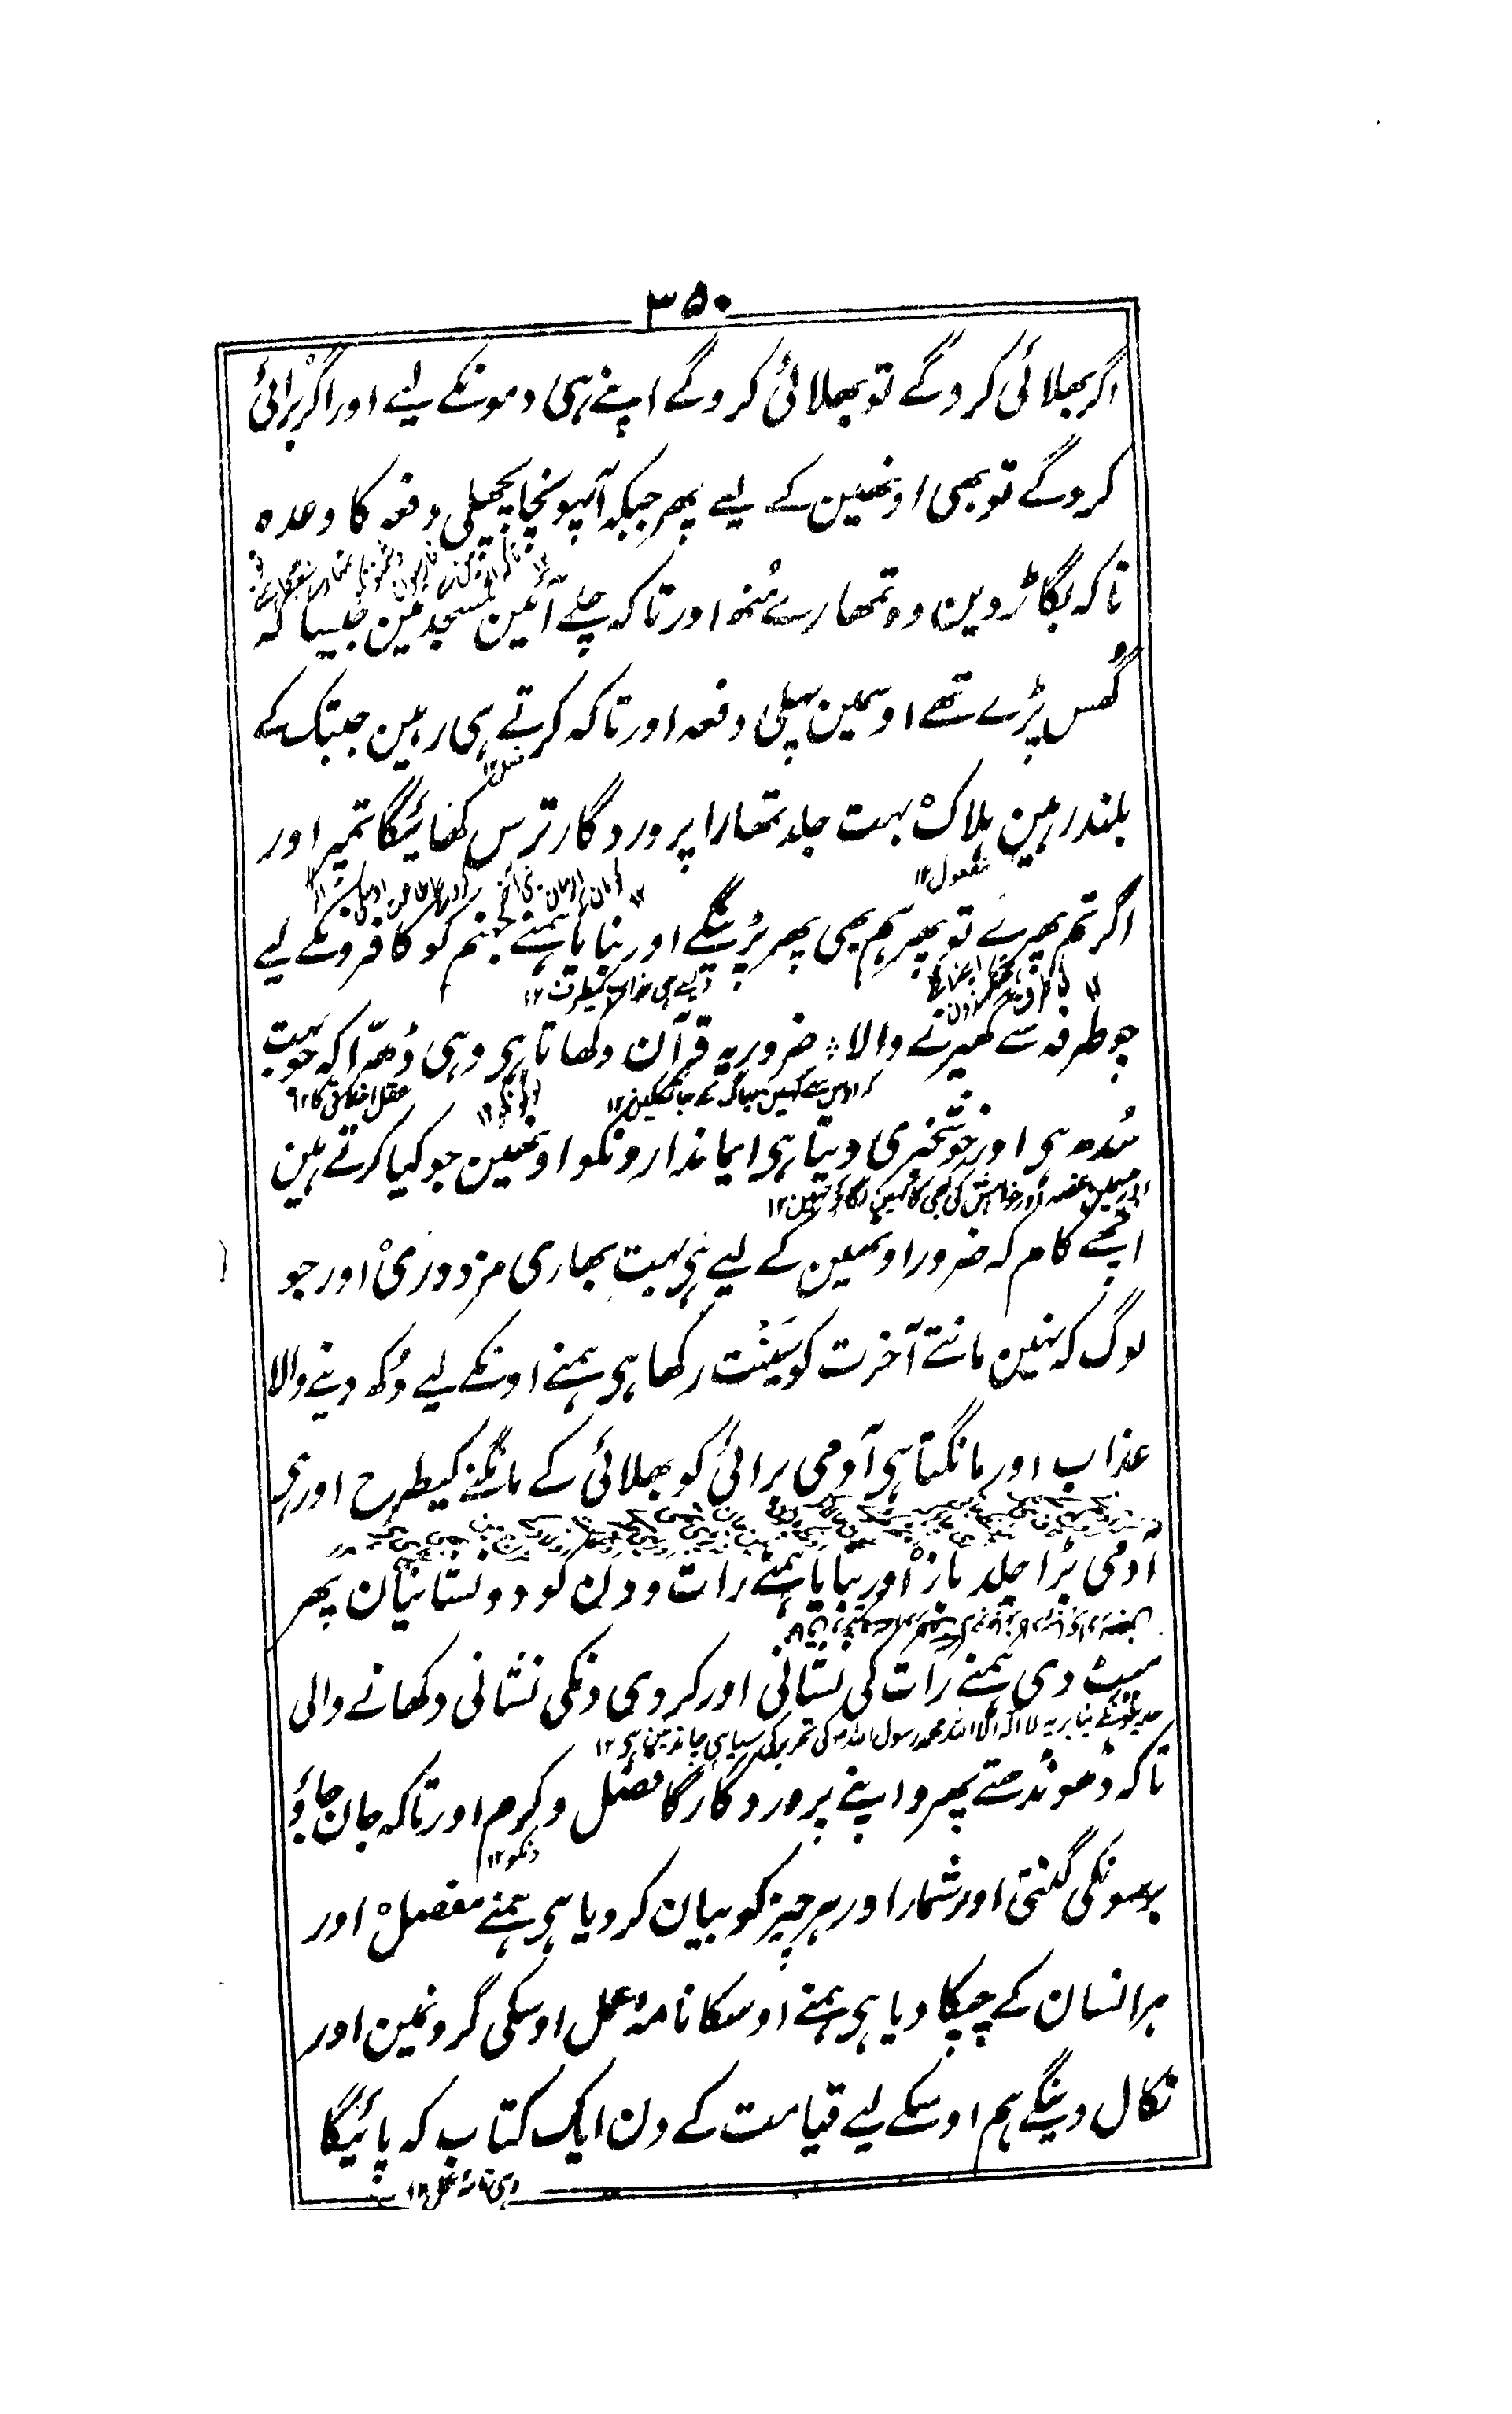 ۳۵۰
اگر بھلائی کروگے تو بھلائی کروگے اپنے ہی دمونکے لیے اور اگر بُرائی
کروگے تو بھی اونھین کے لیے پھر جبکہ آپہونچا پچھلی دفعہ کا وعدہ
تاکہ بگاڑ دین وہ تمھارے مُنھ اور تاکہ چلے آئین مسجد مین جیسا کہ
گھس پڑے تھے اوسمین پہلی دفعہ اور تاکہ کرتے ہی رہین جبتک کے
بلند رہین ہلاک بہت جلد تمھارا پروردگار ترس کھائیگا تمپر اور
مفعول ۱۲
اگر تم پھرے تو پھر ہم بھی پھر پڑینگے اور بنایا ہمنے جہنم کو کافرونکے لیے
چوطرفہ سے گھیرنے والا ضرور یہ قرآن دکھاتا ہی وہی دُھرّا کہ جو بہت
سُدھ ہی اور خوشخبری دیتا ہی ایماندارونکو اونھین جو کیا کرتے ہین
اچھے کام کہ ضرور اونھین کے لیے ہی بہت بھاری مزدوری اور جو
لوگ کہ نہین مانتے آخرت کو سَینْت رکھا ہی ہمنے اونکے لیے دُکھ دینے والا
عذاب اور مانگتا ہی آدمی برائی کو بھلائی کے مانگنے کیطرح اور ہی
آدمی بڑا جلد باز اور بنایا ہمنے رات و دن کو دو نشانیان پھر
میٹ دی ہمنے رات کی نشانی اور کر دی دنکی نشانی دکھانے والی
لا الہ الا اللہ محمد رسول اللہ کی تحریر کی سیاہی چاند مین ہی ۱۲
تاکہ ڈھونڈھتے پھرو اپنے پروردگار کا فضل و کرم اور تاکہ جان جاؤ
دنکو ۱۲
برسونکی گنتی اور شمار اور ہر چیز کو بیان کر دیا ہی ہمنے مفصل اور
ہر انسان کے چپکا دیا ہی ہمنے اوسکا نامۂ عمل اوسکی گردنمین اور
نکال دینگے ہم اوسکے لیے قیامت کے دن ایک کتاب کہ پائیگا
وہی نامۂ عمل ۱۲